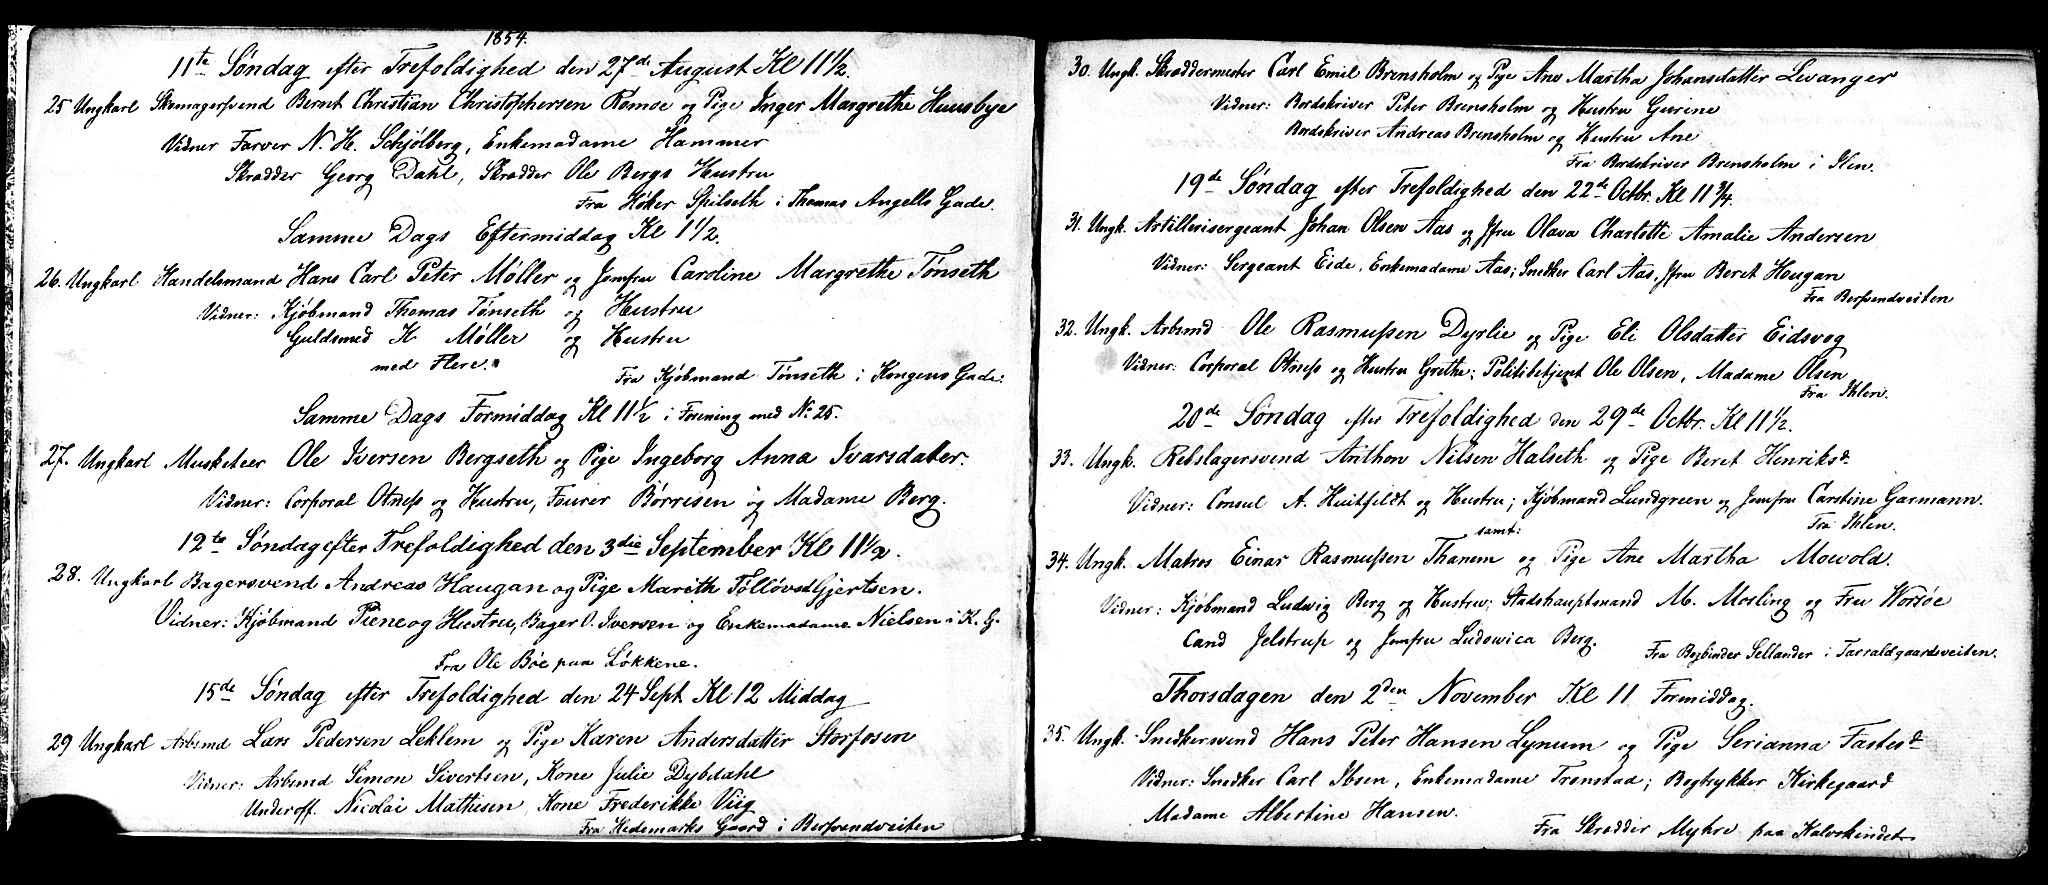 1854.
11te Søndag efter Trefoldighed den 27de August Kl 11 1/2.
25 Ungkarl Skomagersvend Bernt Christian Christophersen Romoe og Pige Inger Margrethe Huusbye
Vidner Farver N. H. Schjølberg, Enkemadame Hammer
Skrædder Georg Dahl, Skrædder Ole Bergs Hustru
Fra Høker Spilseth i Thomas Angells Gade.
Samme Dags Eftermiddag Kl 1 1/2.
26. Ungkarl Handelsmand Hans Carl Peter Møller og Jomfru Caroline Margrethe Tønseth
Vidner: Kjøbmand Thomas Tønseth og Hustru
Guldsmed K. Møller og Hustru
med Flere.
Fra Kjøbmand Tønseth i Kongens Gade.
Samme Dags Formiddag Kl 11 1/2 i Forening med No 25.
27. Ungkarl Musketeer Ole Iversen Bergseth og Pige Ingeborg Anna Ivarsdatter.
Vidner: Corporal Otness og Hustru, Fourer Børresen og Madame Berg.
12te Søndag efter Trefoldighed den 3die September Kl 11 1/2.
28. Ungkarl Bagersvend Andreas Haugan og Pige Marith Tølløvsd Gjertsen.
Vidner: Kjøbmand Piene og Hustru, Bager O. Iversen og Enkemadame Nielsen i K. G.
Fra Ole Böe paa Løkkene.
15de Søndag efter Trefoldighed den 24 Sept Kl 12 Middag
29 Ungkarl Arbsmd Lars Pedersen Leklem og Pige Karen Andersdatter Storfosen
Vidner: Arbsmd Simon Sivertsen, Kone Julie Dybdahl
Underoff. Nicolai Mathisen, Kone Frederikke Viig
Fra Hedemarks Gaard i Bersvendveiten
30. Ungk. Skræddermester Carl Emil Brensholm og Pige Ane Martha Johansdatter Levanger
Vidner: Bordskriver Peter Brensholm og Hustru Gurine
Bordskriver Andreas Brensholm og Hustru Ane
Fra Bordskriver Brensholm i Ilen.
19de Søndag efter Trefoldighed den 22de Octbr. Kl 11 3/4.
31. Ungk. Artillerisergeant Johan Olsen Aas og Jfru Olava Charlotte Amalie Andersen
Vidner: Sergeant Eide, Enkemadame Aas; Snedker Carl Aas, Jfru Beret Hougan
Fra Bersvendveiten
32. Ungk. Arbsmd Ole Rasmussen Dyrlie og Pige Eli Olsdatter Eidsvog
Vidner: Corporal Otness og Hustru Grethe; Politibetjent Ole Olsen, Madame Olsen
Fra Ihlen.
20de Søndag efter Trefoldighed den 29de Octbr. Kl 11 1/2.
33. Ungk. Rebslagersvend Anthon Nilsen Halseth og Pige Beret Henriksd.
Vidner: Consul A. Huitfeldt og Hustru; Kjöbmand Lundgreen og Jomfru Carstine Garmann.
Fra Ihlen.
samt:
34. Ungk. Matros Einar Rasmussen Thanem og Pige Ane Martha Moevold.
Vidner: Kjøbmand Ludwig Berg og Hustru; Stadshauptmand M. Mosling og Fru Worsöe
Cand Jelstrup og Jomfru Ludowica Berg.
Fra Bogbinder Sellander i Taraldgaardsveiten.
Thorsdagen den 2den November Kl 11 Formiddag.
35. Ungk. Snedkersvend Hans Peter Hansen Lynum og Pige Serianna Fastesd.
Vidner: Snedker Carl Ibsen, Enkemadame Tronstad; Bogtrykker Kirkegaard
Madame Albertine Hansen.
Fra Skrædder Myhre paa Kalvskindet